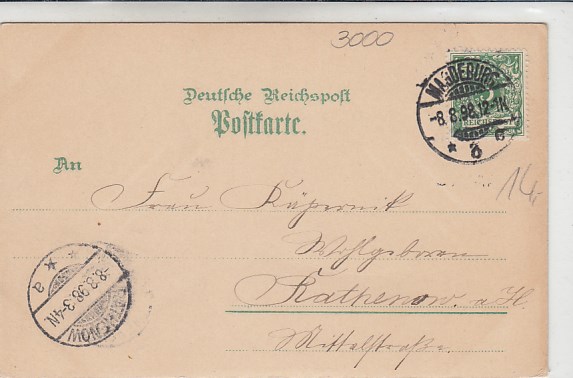 3000
Deutsche Reichspost
Postkarte.
MAGDEBURG
-8.8.98.12-1N.
* 6 c
REICHSPOST
An
14,
Frau Käpernik
Wohlgeboren
Rathenow a/H.
Mittelstraße.
* * a
-8.8.98.3-4N
RATHENOW